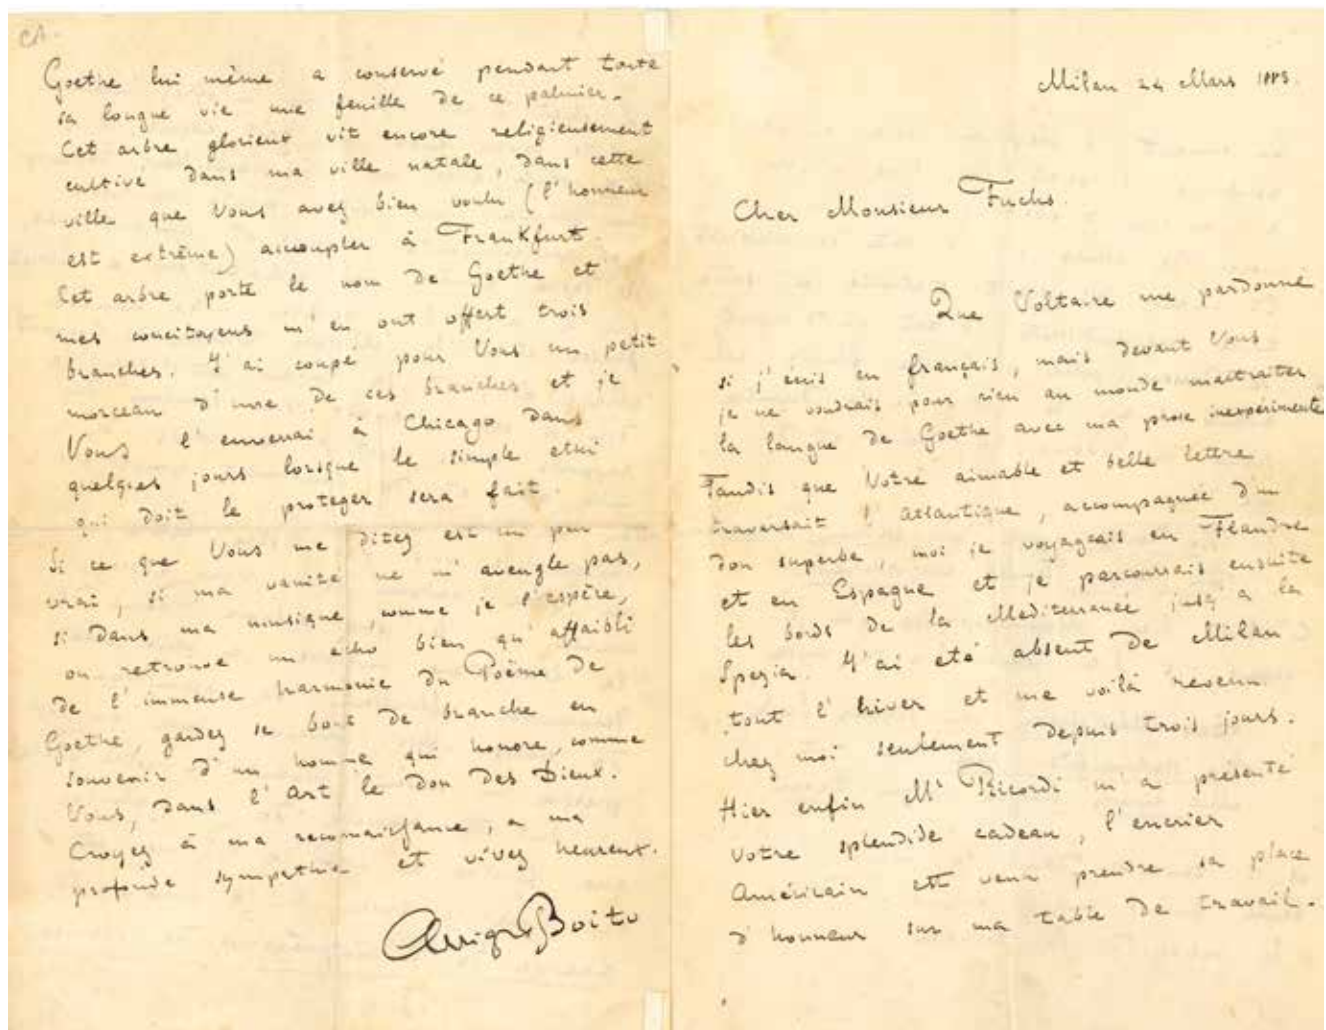 CA.
Goethe lui même a conservé pendant toute
sa longue vie une feuille de ce palmier.
Cet arbre glorieux vit encore religieusement
cultivé dans ma ville natale, dans cette
ville que Vous avez bien voulu (l'honneur
est extrême) accoupler à Frankfurt.
Cet arbre porte le nom de Goethe et
mes concitoyens m'en ont offert trois
branches. J'ai coupé pour Vous un petit
morceau d'une de ces branches et je
Vous l'enverrai à Chicago dans
quelques jours lorsque le simple etui
qui doit le proteger sera fait.
Si ce que Vous me ditez est un peu
vrai, si ma vanité ne m'aveugle pas,
si dans ma musique, comme je l'espère,
on retrouve un echo bien qu'affaibli
de l'immense harmonie du Poëme de
Goethe, gardez ce bout de branche en
souvenir d'un homme qui honore, comme
Vous, dans l'Art le don des Dieux.
Croyez à ma reconnaissance, a ma
profonde sympathie et vivez heureux.
Arrigo Boito
Milan 24 Mars 1883.
Cher Monsieur Fuchs.
Que Voltaire me pardonne
si j'écris en français, mais devant Vous
je ne voudrais pour rien au monde maltraiter
la langue de Goethe avec ma prose inexpérimentée
Tandis que Votre aimable et belle lettre
traversait l'Atlantique, accompagnée d'un
don superbe, moi je voyageais en Flandre
et en Espagne et je parcourrais ensuite
les bords de la Mediterranée jusq'a la
Spezia. J'ai eté absent de Milan
tout l'hiver et me voilà revenu
chez moi seulement depuis trois jours.
Hier enfin Mr Ricordi m'a présenté
Votre splendide cadeau, l'encrier
Américain est venu prendre sa place
d'honneur sur ma table de travail.